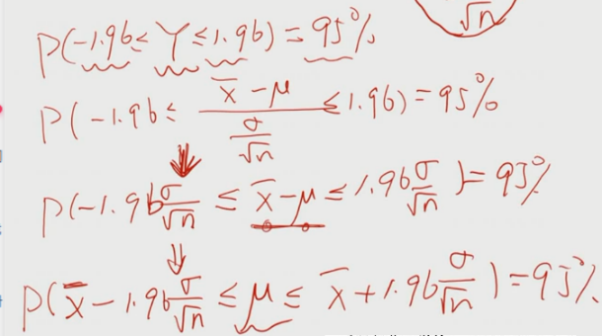 √n
P(-1.96≤ Y ≤1.96) = 95%
P(-1.96≤ (x̄-μ)/(σ/√n) ≤1.96) = 95%
P(-1.96σ/√n ≤ x̄-μ ≤ 1.96σ/√n) = 95%
P(x̄-1.96σ/√n ≤ μ ≤ x̄+1.96σ/√n) = 95%